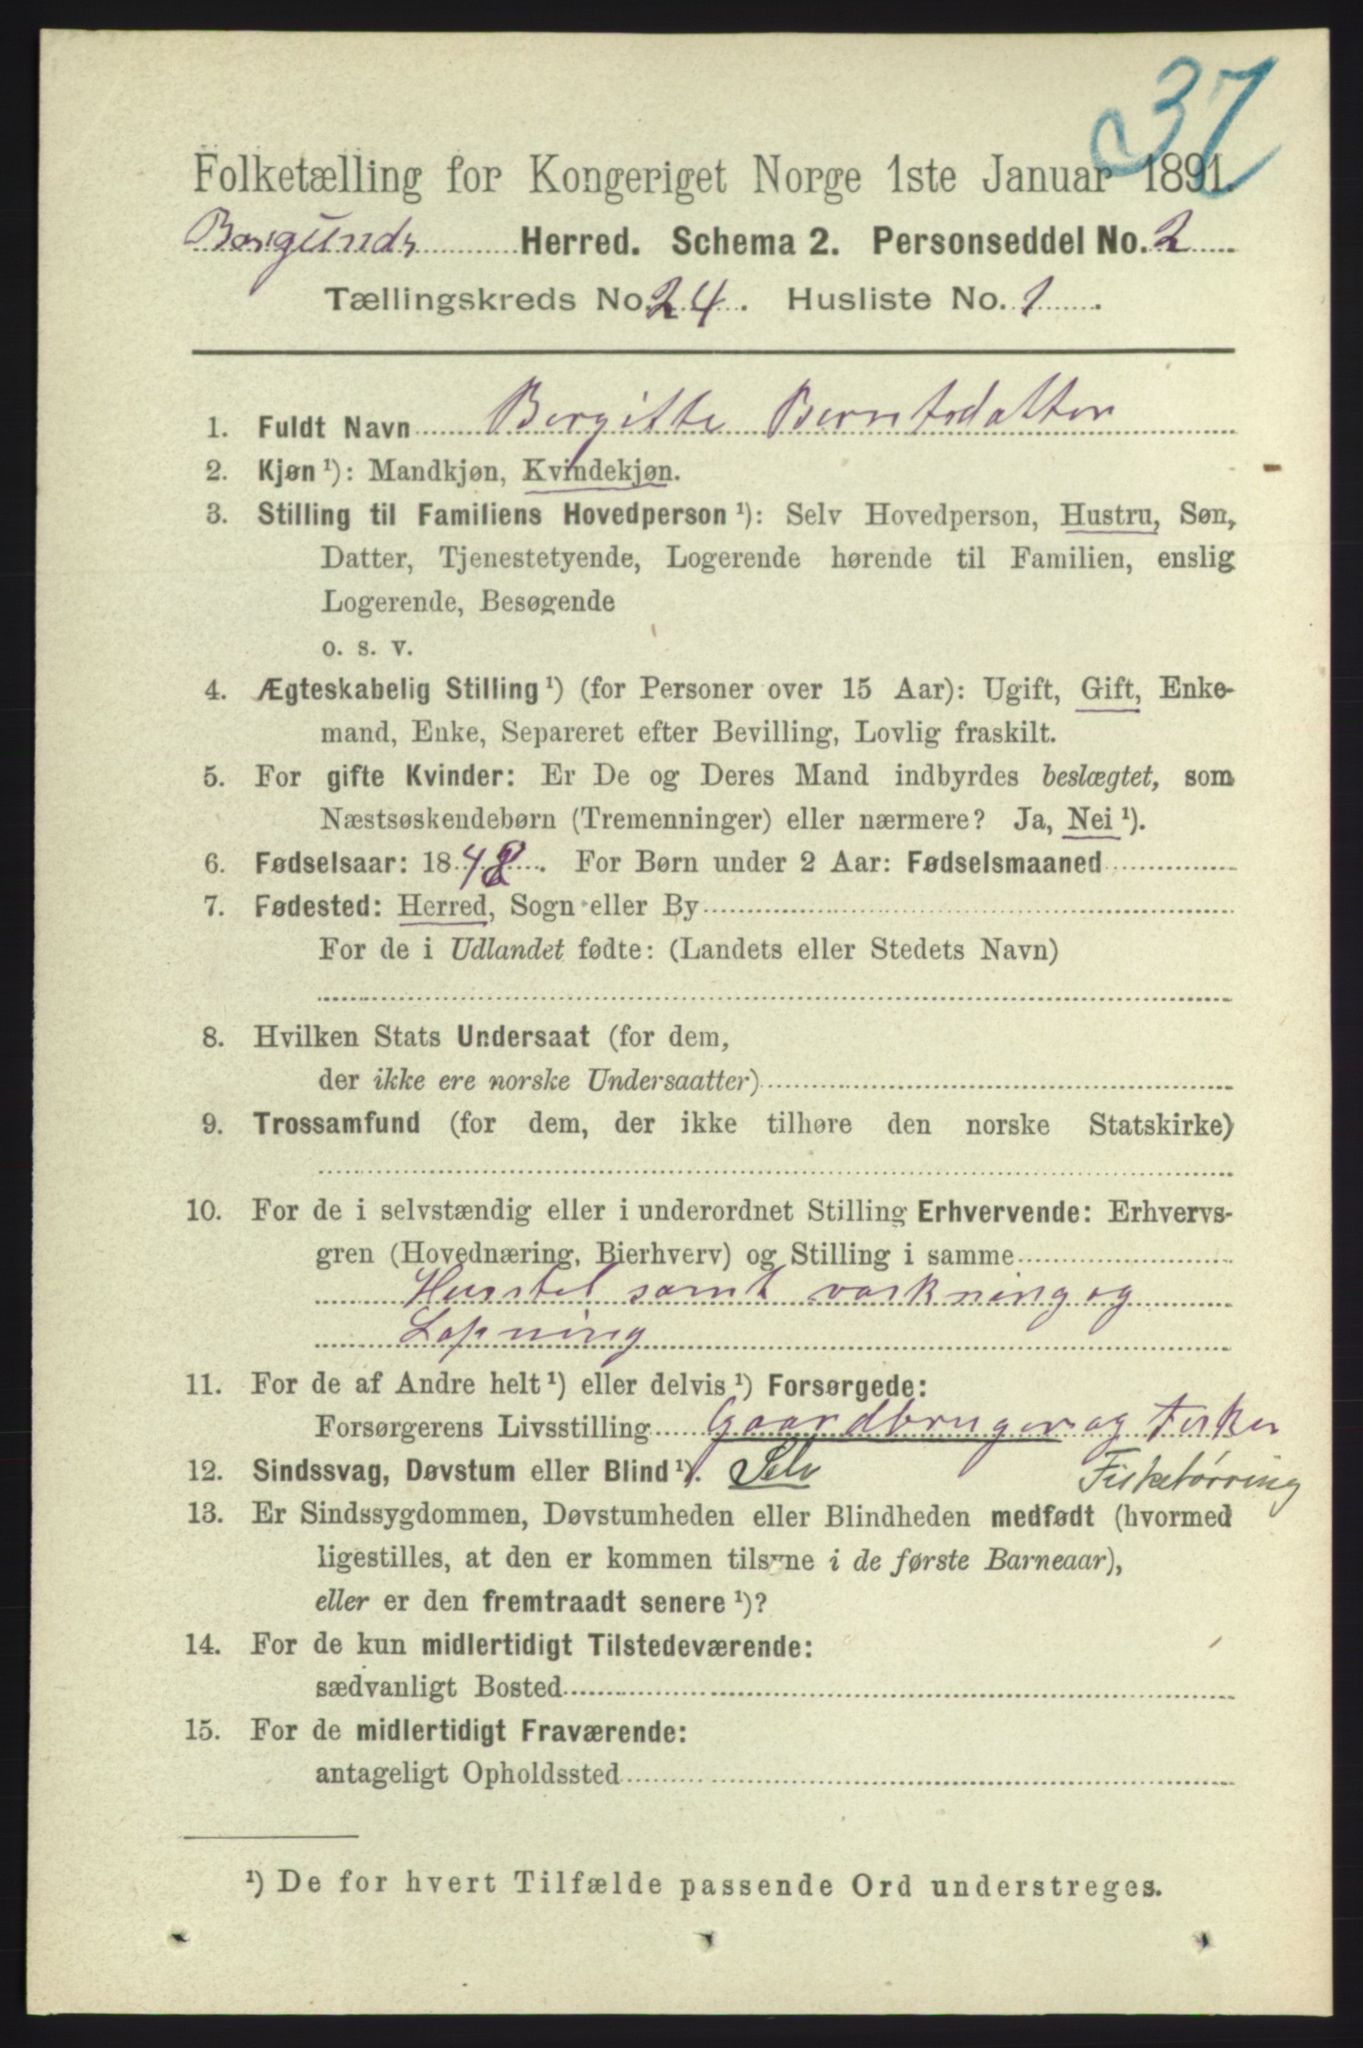 37
Folketælling for Kongeriget Norge 1ste Januar 1891.
Borgunds Herred. Schema 2. Personseddel No. 2
Tællingskreds No. 24. Husliste No. 1.
1. Fuldt Navn Bergitte Berntsdatter
2. Kjøn ¹): Mandkjøn, Kvindekjøn.
3. Stilling til Familiens Hovedperson ¹): Selv Hovedperson, Hustru, Søn,
Datter, Tjenestetyende, Logerende hørende til Familien, enslig
Logerende, Besøgende
o. s. v.
4. Ægteskabelig Stilling ¹) (for Personer over 15 Aar): Ugift, Gift, Enke-
mand, Enke, Separeret efter Bevilling, Lovlig fraskilt.
5. For gifte Kvinder: Er De og Deres Mand indbyrdes beslægtet, som
Næstsøskendebørn (Tremenninger) eller nærmere? Ja, Nei ¹).
6. Fødselsaar: 1848. For Børn under 2 Aar: Fødselsmaaned
7. Fødested: Herred, Sogn eller By
For de i Udlandet fødte: (Landets eller Stedets Navn)
8. Hvilken Stats Undersaat (for dem,
der ikke ere norske Undersaatter)
9. Trossamfund (for dem, der ikke tilhøre den norske Statskirke)
10. For de i selvstændig eller i underordnet Stilling Erhvervende: Erhvervs-
gren (Hovednæring, Bierhverv) og Stilling i samme
Husstel samt vaskning og
Lapning
11. For de af Andre helt ¹) eller delvis ¹) Forsørgede:
Forsørgerens Livsstilling Gaardbruger og Fisker
12. Sindssvag, Døvstum eller Blind ¹). Selv Fisketørring
13. Er Sindssygdommen, Døvstumheden eller Blindheden medfødt (hvormed
ligestilles, at den er kommen tilsyne i de første Barneaar),
eller er den fremtraadt senere ¹)?
14. For de kun midlertidigt Tilstedeværende:
sædvanligt Bosted
15. For de midlertidigt Fraværende:
antageligt Opholdssted
¹) De for hvert Tilfælde passende Ord understreges.